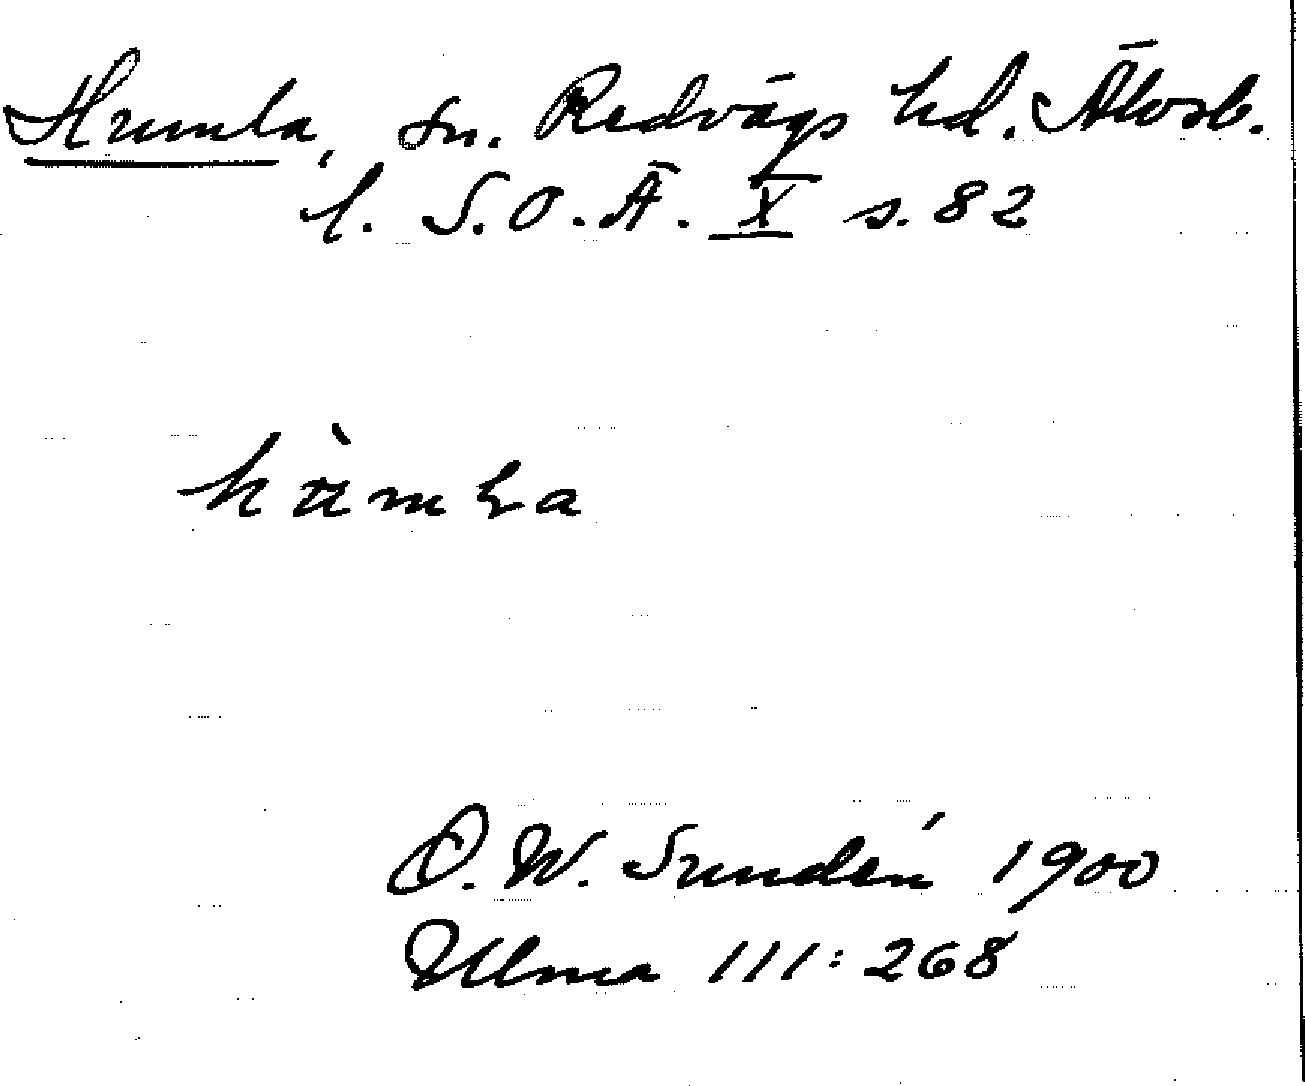 Humla, sn. Redvägs hd. Älvsb.
l. S.O.Ä. X s. 82
hàmla
D. W. Sundén 1900
Ulma 111:268